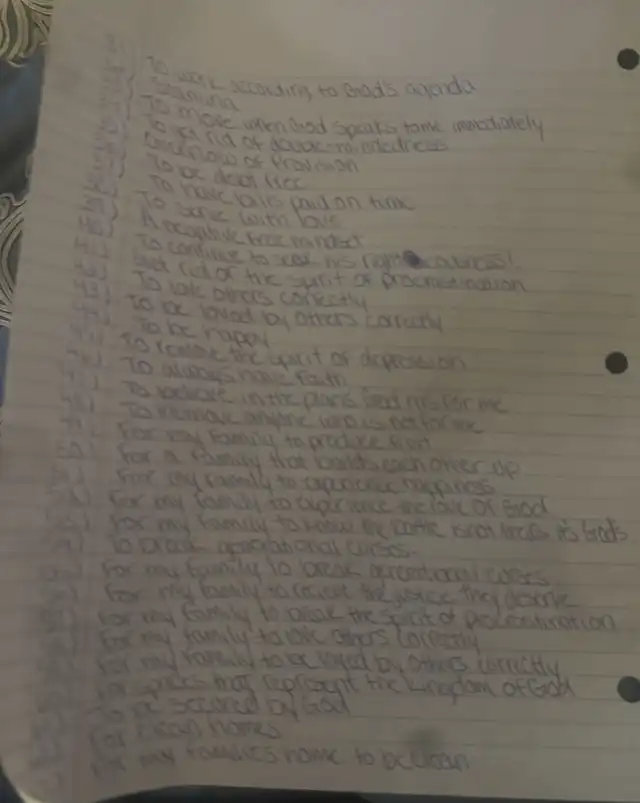 To work according to God's agenda
To move when God speaks to me immediately
To get rid of double-mindedness
Overflow of Provision
To be debt free
To have bills paid on time
To serve with love
A negative free mindset
To continue to seek his righteousness!
Get rid of the spirit of procrastination
To love others correctly
To be loved by others correctly
To be happy
To remove the spirit of depression
To always have faith
To believe in the plans God has for me
To remove anyone who is not for me
For my family to produce fruit
For a family that builds each other up
For my family to experience happiness
For my family to experience the love of God
For my family to know the battle is not theirs it's God's
To break generational curses
For my family to break generational curses
For my family to receive the peace they deserve
For my family to break the spirit of procrastination
For my family to love others correctly
For my family to be loved by others correctly
For spaces that represent the kingdom of God
To be secured by God
For clean homes
For my families home to be clean